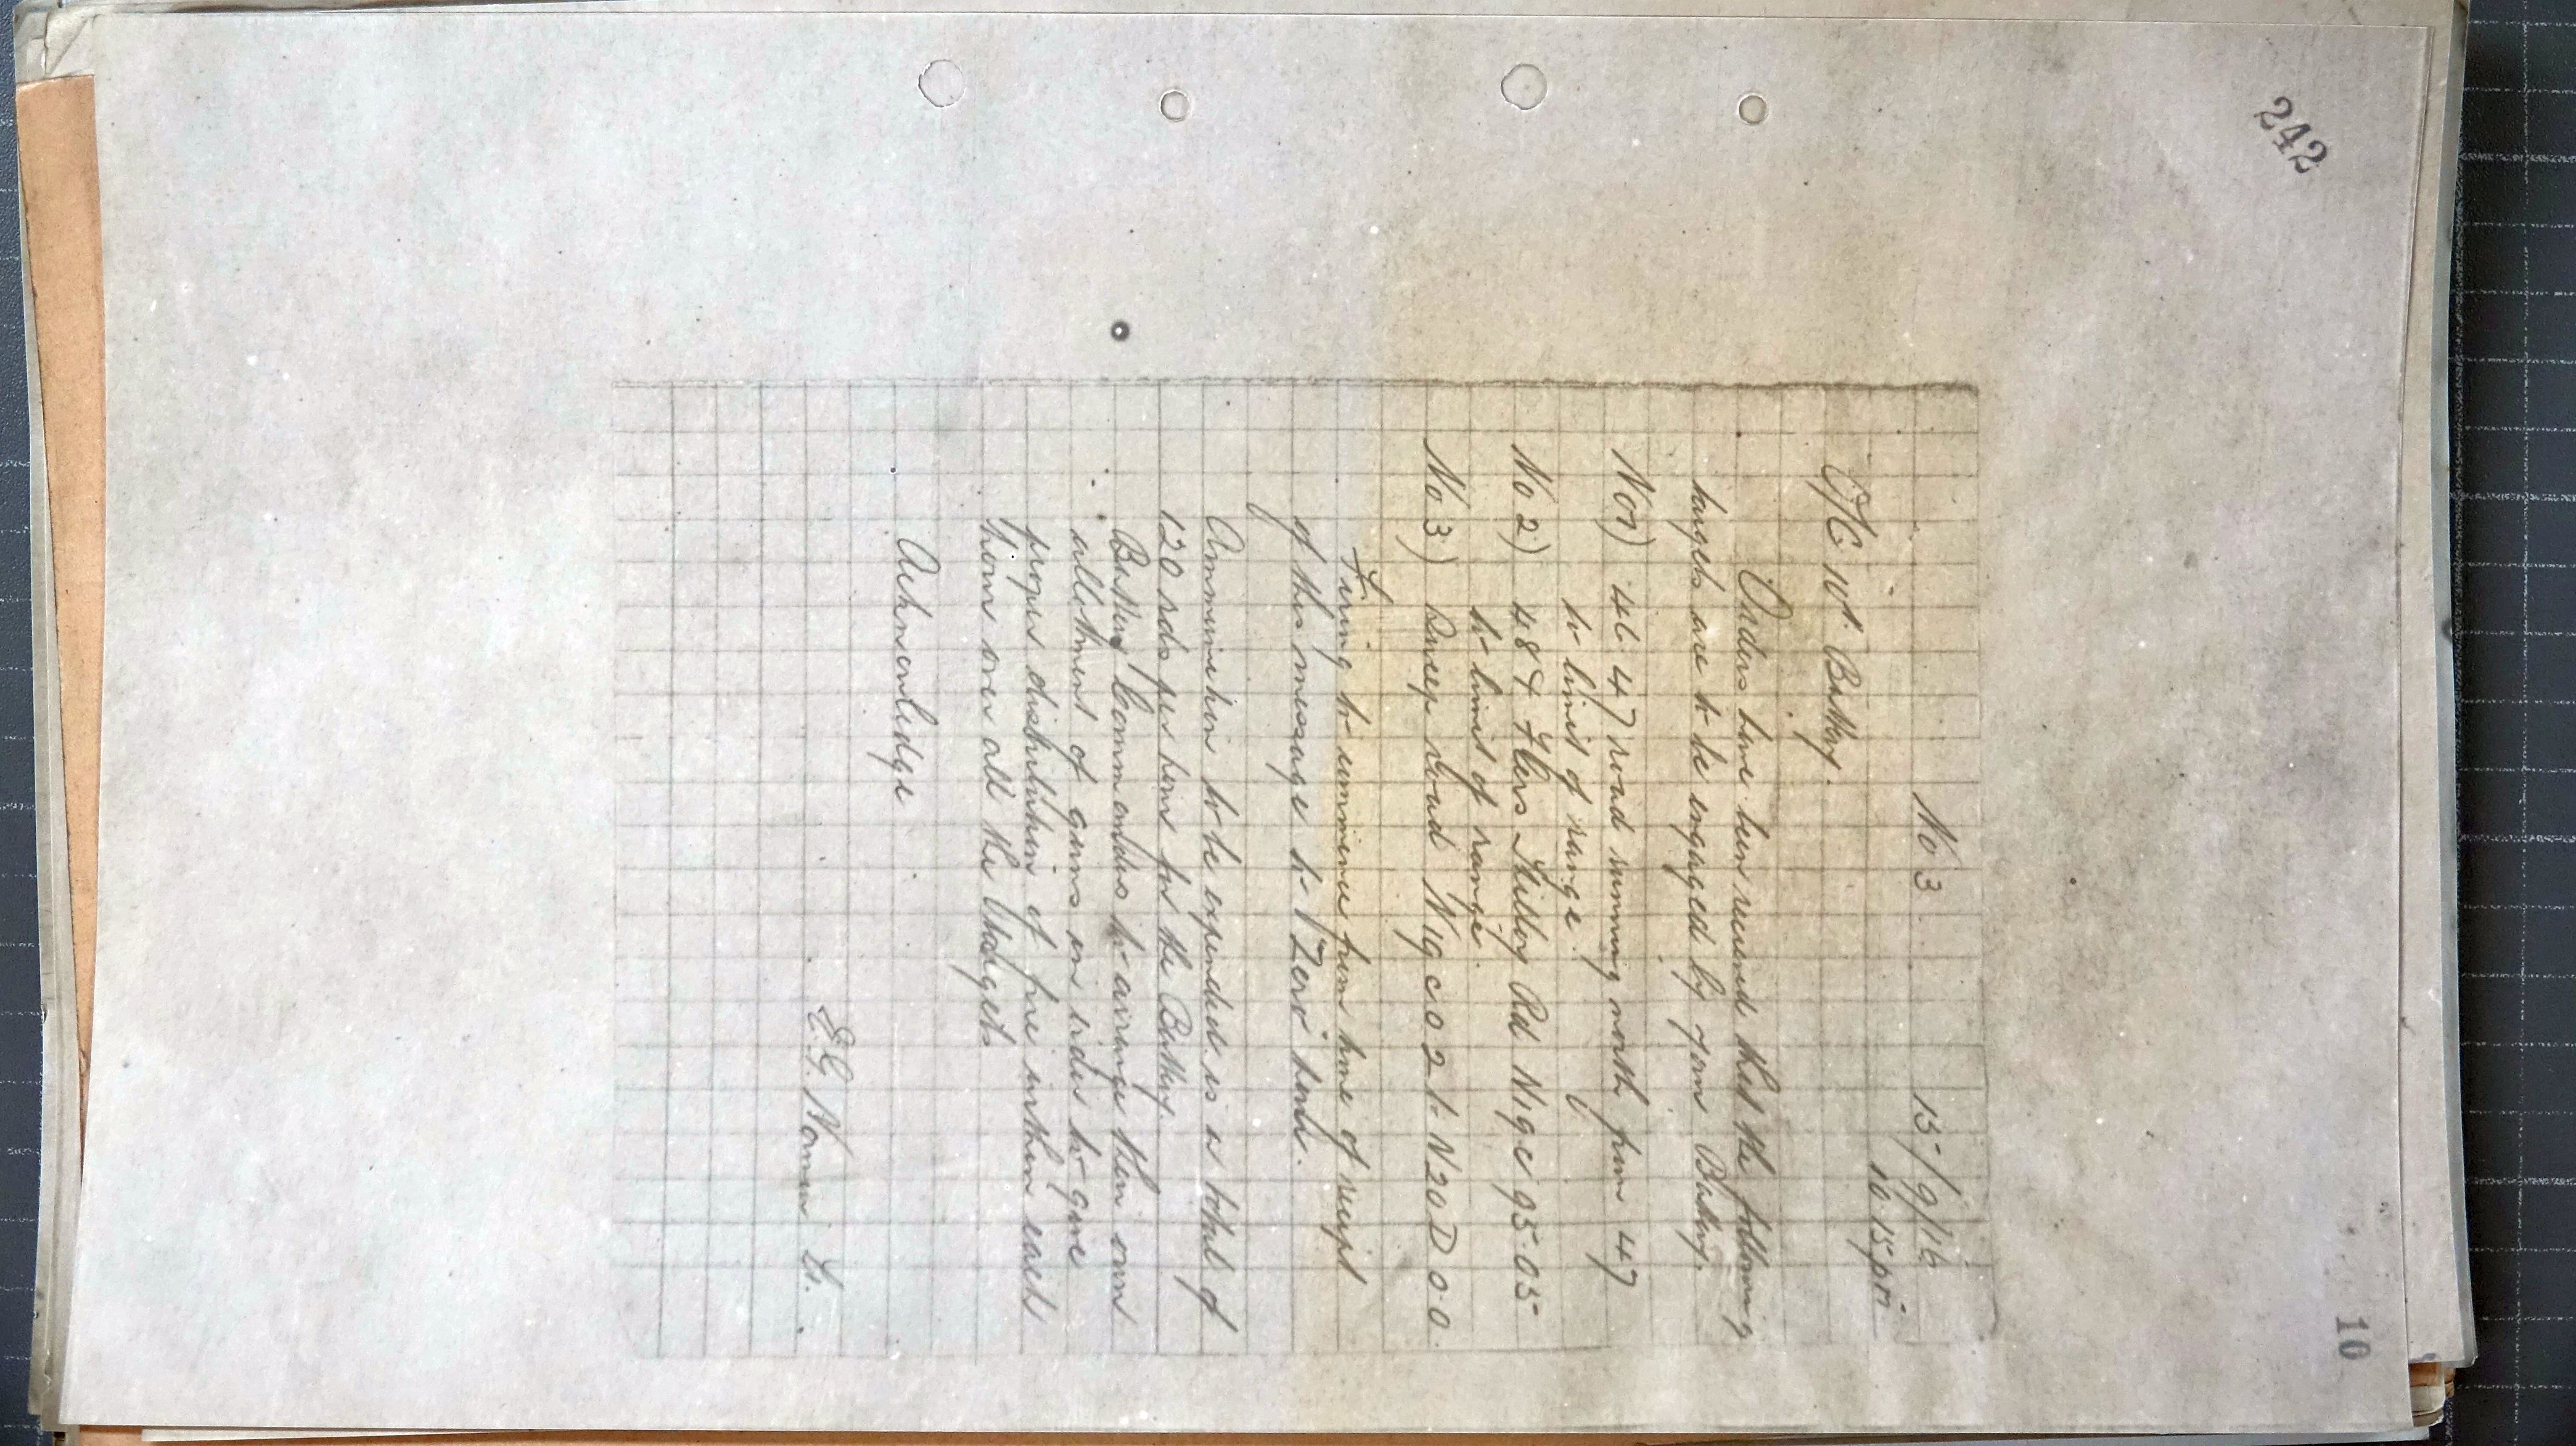 242
10
No 3
15/9/16
10 15 pm
O/C 10th Battery.
Orders have been received that the following
targets are to be engaged by your Battery.
No 1) 46 47 road running north from 47
to limit of range.
No 2) 48 & 4 Flers Thilloy Rd N19c 95.05
to limit of range.
No 3) Sweep road N19 c.0 2 to N20 D 0.0.
Firing to commence from time of receipt
of this message to Zero hour.
Ammunition to be expended is a total of
120 rds per hour for the Battery.
Battery Commanders to arrange their own
allotment of guns in order to give
proper distribution of fire within each
hour over all the targets
Acknowledge
E.G. Lt.